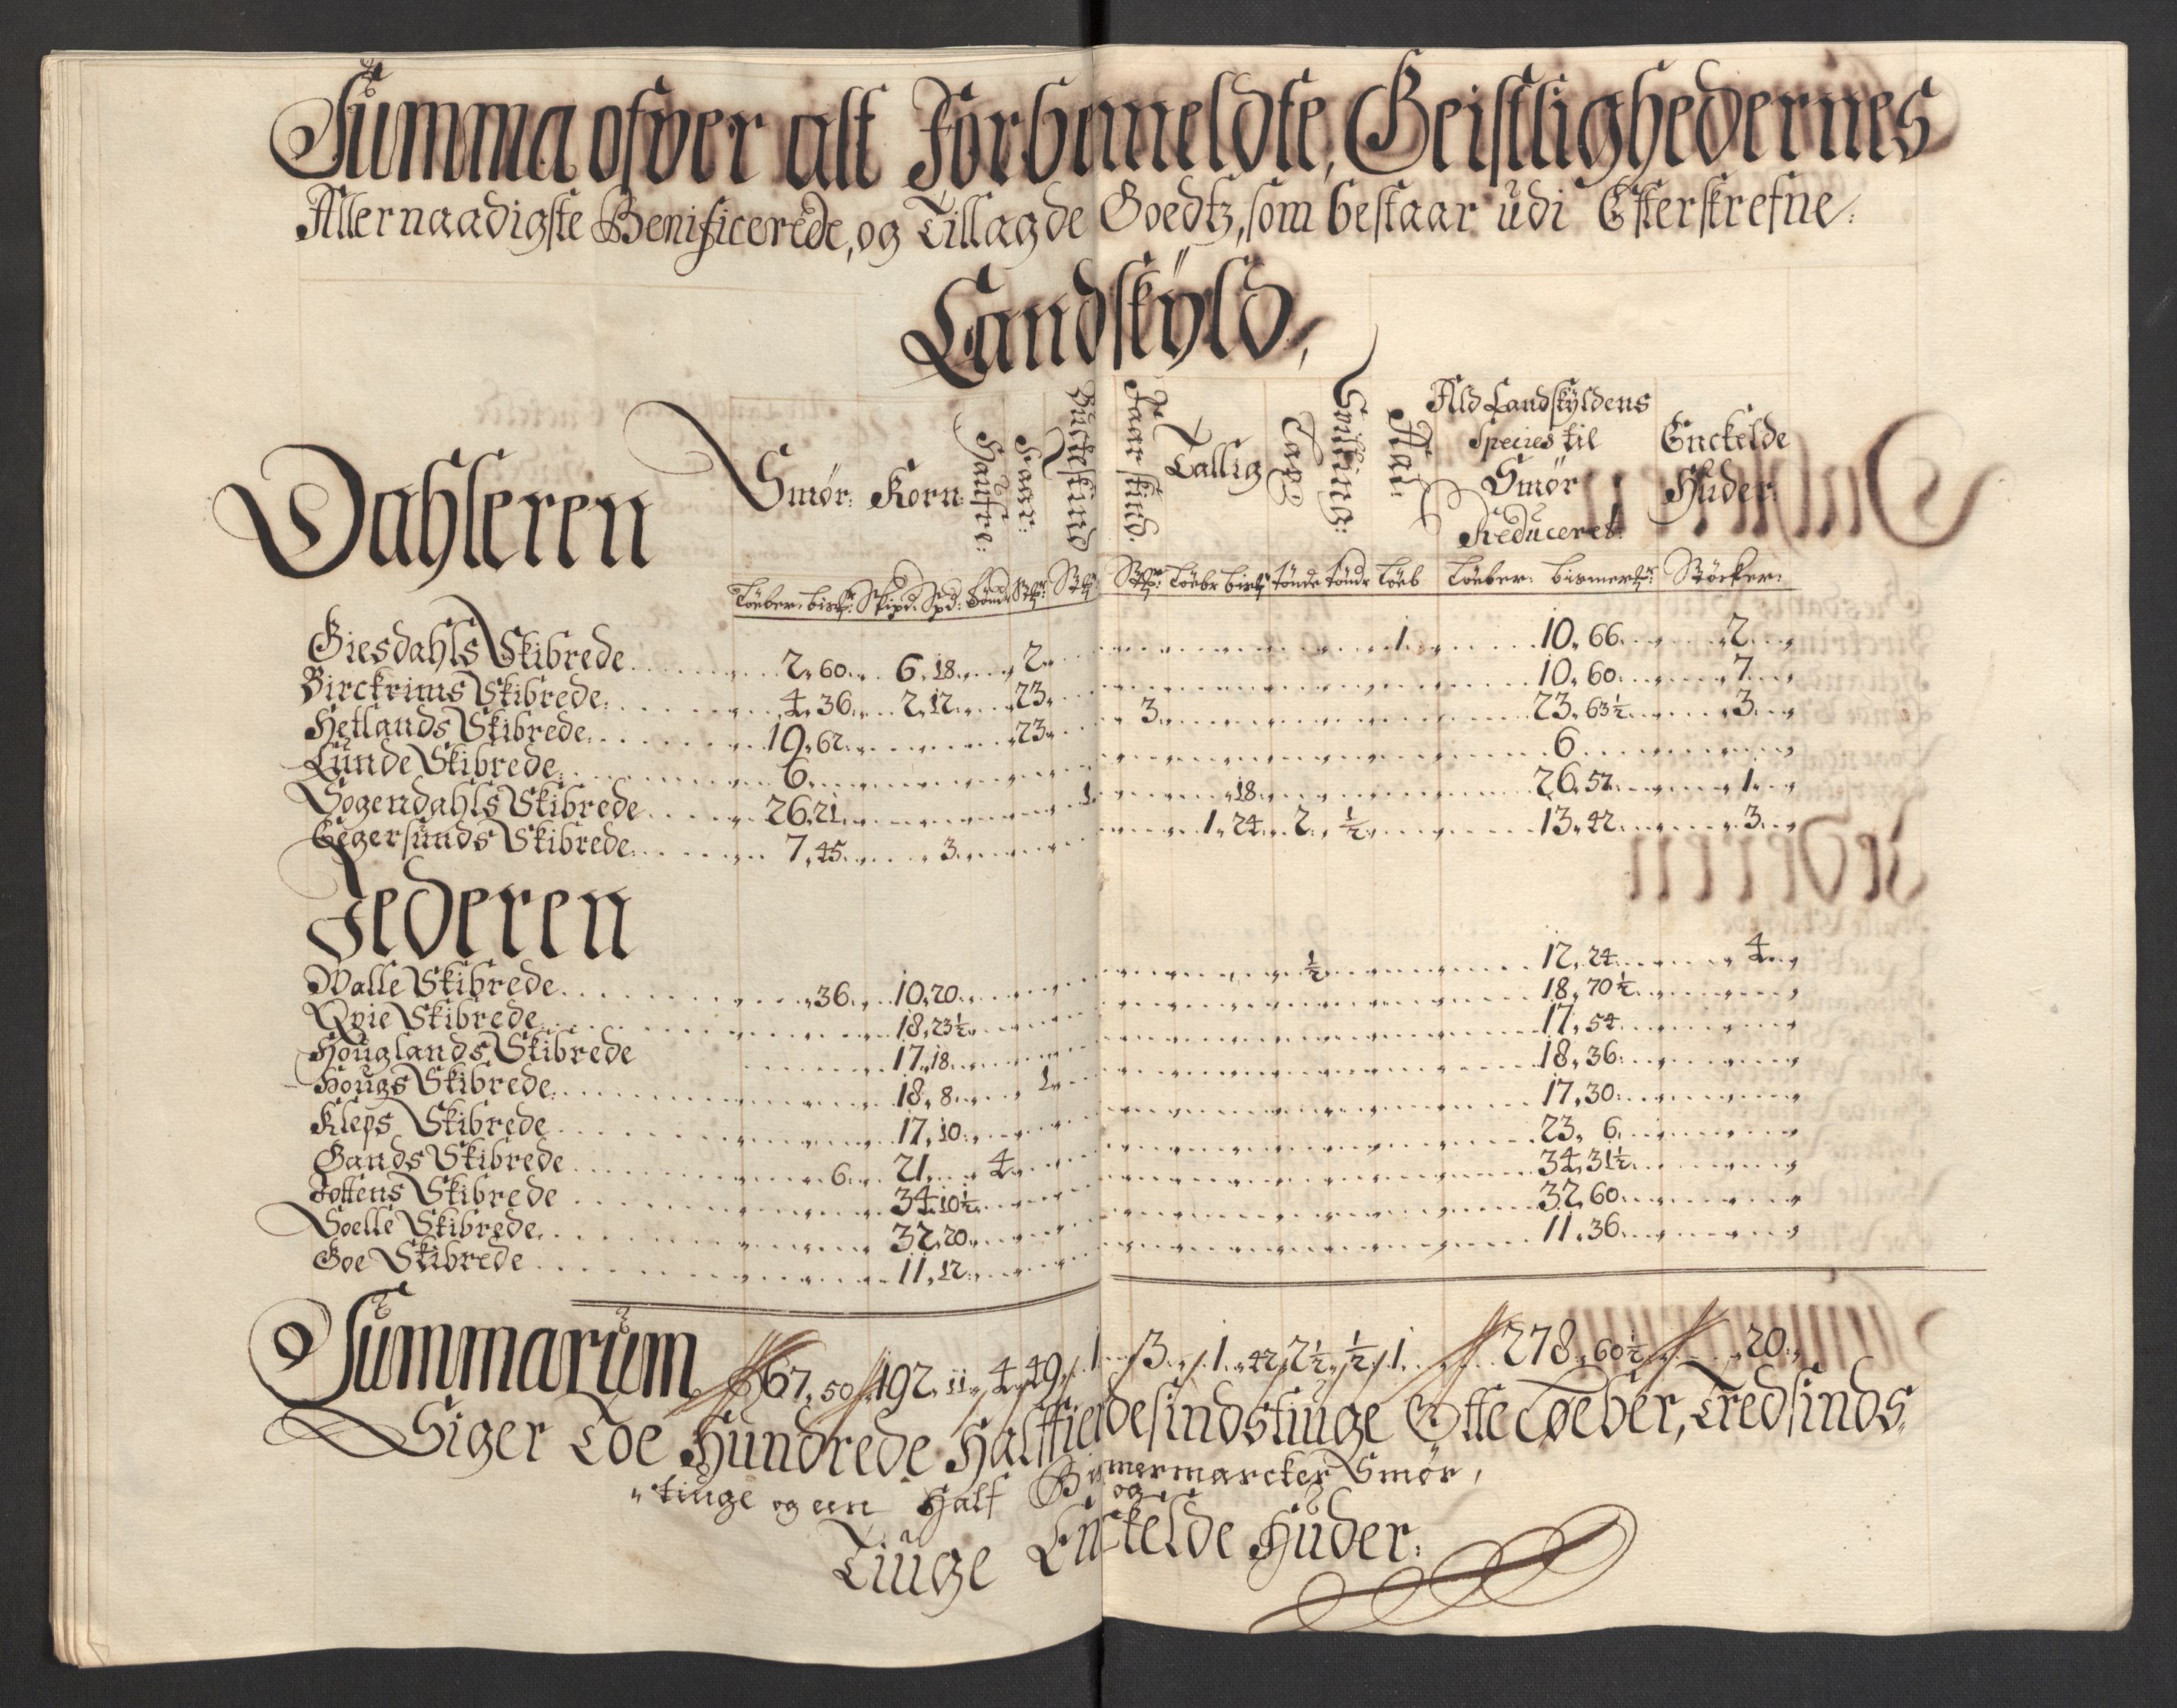 Summa ofver alt Forbemeldte, Geistlighedernes
Allernaadigste Benificerede, og Tillagde Goedtz, som bestaar udi Efterskrefne:
Landskyld,
Dahleren Smør: Korn: Hafre: Faar: Buckeskind Faarskind. Tallig Ald Landskyldens Species til Smør Reduceret: Enckelde Huder:
Løeber. Skipd. Løeb Løeber: Stöcker:
Giesdahls Skibrede 2, 60 6, 18 2 1 10, 66 2
Birckrims Skibrede 4, 36 2, 12 23 10, 60 7
Hetlands Skibrede 19, 62 23 3 23, 63½ 3
Lunde Skibrede 6 6
Sogendahls Skibrede 26, 21 1 18 26, 52 1
Egersunds Skibrede 7, 45 3 1, 24 2 ½ 13, 42 3
Jederen
Walle Skibrede 36 10, 20 ½ 12, 24 4
Qvie Skibrede 18, 23½ 18, 70½
Houglands Skibrede 17, 18 17, 54
Hougs Skibrede 18, 8 1 18, 36
Kleps Skibrede 17, 10 17, 30
Gands Skibrede 6 21 4 23, 6
Jottens Skibrede 34, 10½ 34, 31½
Soelle Skibrede 32, 20 32, 60
Goe Skibrede 11, 12 11, 36
Summarum 67, 50 192, 11 4 49 1 3 1, 42 2½ ½ 1 278, 60½ 20
Siger Toe Hundrede Halffierdesindstiuge Otte Løeber, Tredsinds
tiuge og een Half Bismermarcker Smør,
og
Tiuge Enckelde Huder.